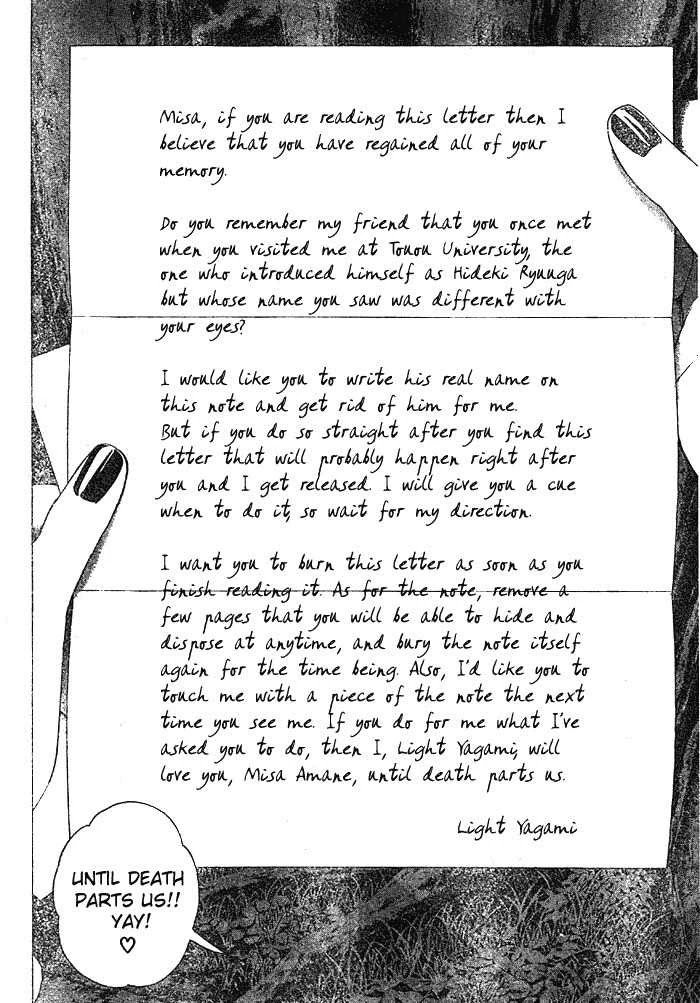 Misa, if you are reading this letter then I
believe that you have regained all of your
memory.
Do you remember my friend that you once met
when you visited me at Touou University, the
one who introduced himself as Hideki Ryuuga
but whose name you saw was different with
your eyes?
I would like you to write his real name on
this note and get rid of him for me.
But if you do so straight after you find this
letter that will probably happen right after
you and I get released. I will give you a cue
when to do it, so wait for my direction.
I want you to burn this letter as soon as you
finish reading it. As for the note, remove a
few pages that you will be able to hide and
dispose at anytime, and bury the note itself
again for the time being. Also, I'd like you to
touch me with a piece of the note the next
time you see me. If you do for me what I've
asked you to do, then I, Light Yagami, will
love you, Misa Amane, until death parts us.
Light Yagami
UNTIL DEATH
PARTS US!!
YAY!
♡